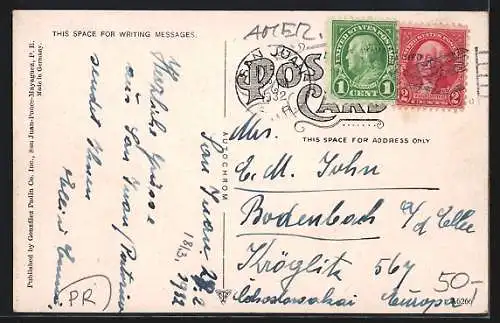 THIS SPACE FOR WRITING MESSAGES.
AMER.
UNITED STATES POSTAGE
1 CENT 1
2 CENTS 2
SAN JUAN
1932
POST
CARD
THIS SPACE FOR ADDRESS ONLY
Published by González Padín Co. Inc., San Juan-Ponce-Mayaguez, P. R.
Made in Germany.
AUTOCHROM
Herzliche Grüsse
aus San Juan/Portorico
sendet Ihnen
San Juan
18/3. 1932
PR
Mrs.
E. M. John
Bodenbach a/d Elbe
Kröglitz 567
Czechoslovakai Europe
50-